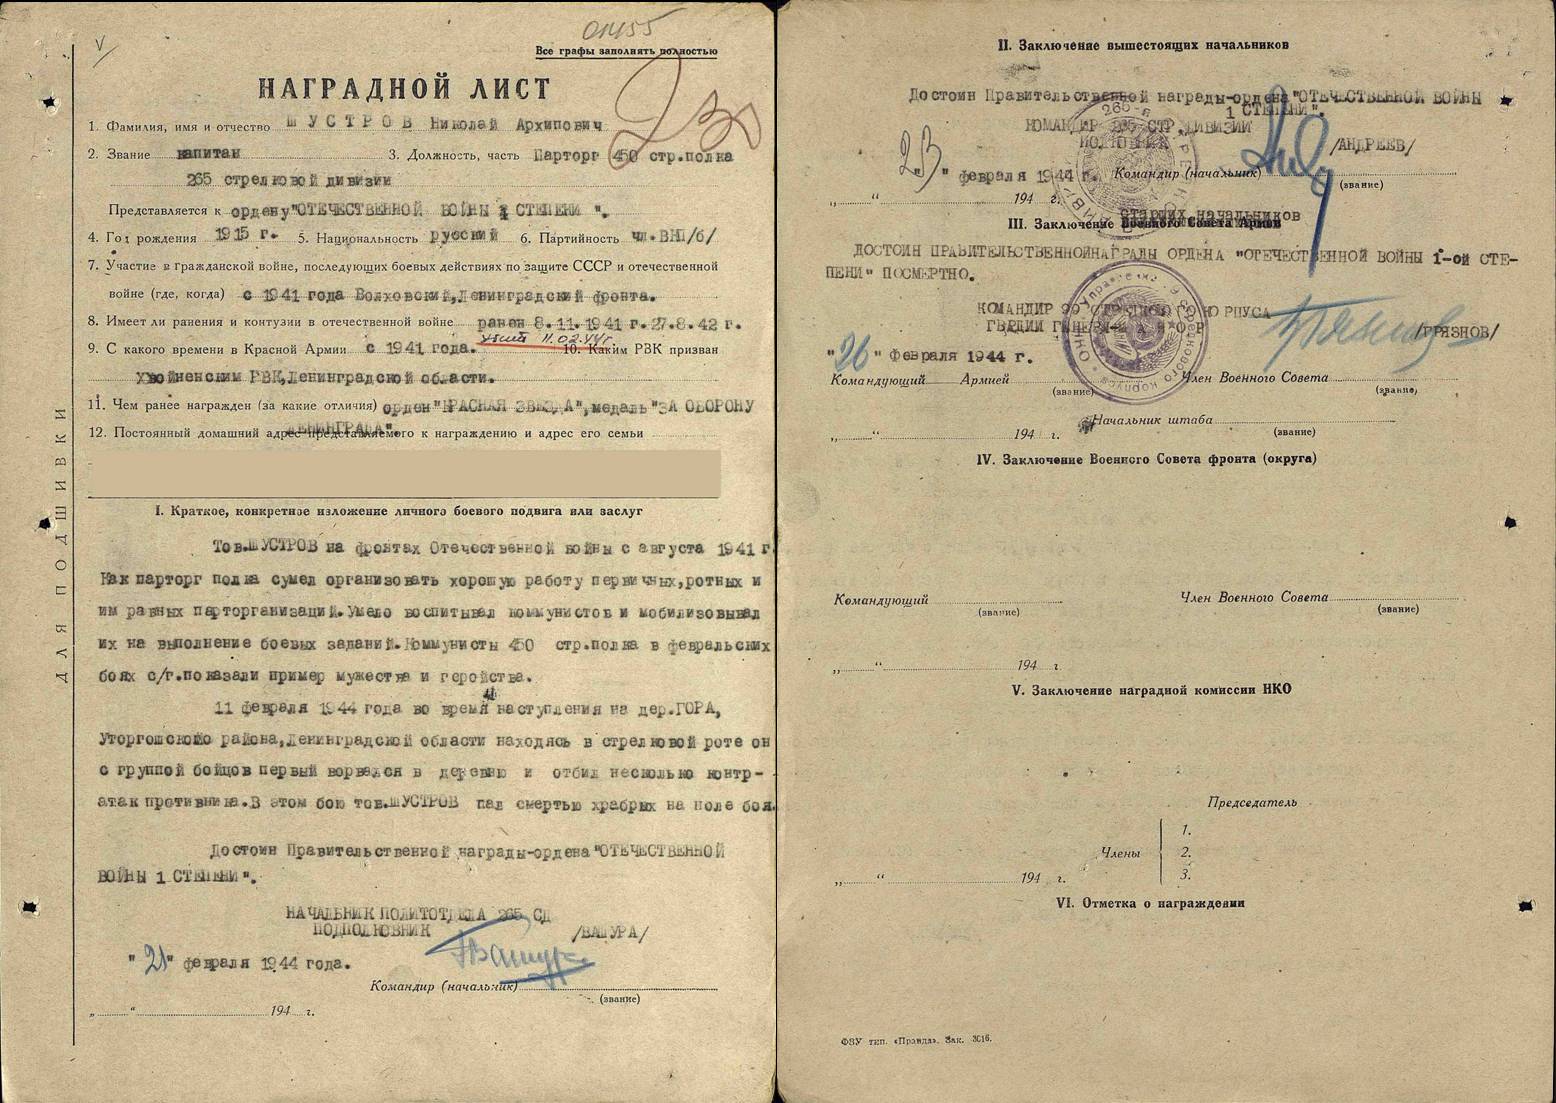 01455
Все графы заполнять полностью
НАГРАДНОЙ ЛИСТ
1. Фамилия, имя и отчество ШУСТРОВ Николай Архипович
2. Звание капитан 3. Должность, часть Парторг 450 стр.полка
265 стрелковой дивизии
Представляется к ордену "ОТЕЧЕСТВЕННОЙ ВОЙНЫ 1 СТЕПЕНИ ".
4. Год рождения 1915 г. 5. Национальность русский 6. Партийность чл.ВКП/б/
7. Участие в гражданской войне, последующих боевых действиях по защите СССР и отечественной
войне (где, когда) с 1941 года Волховский,Ленинградский фронта.
8. Имеет ли ранения и контузии в отечественной войне ранен 8.11.1941 г.27.8.42 г.
убит 11.02.44г
9. С какого времени в Красной Армии с 1941 года. 10. Каким РВК призван
Хвойненским РВК,Ленинградской области.
11. Чем ранее награжден (за какие отличия) орден "КРАСНАЯ ЗВЕЗДА",медаль "ЗА ОБОРОНУ
ЛЕНИНГРАДА".
12. Постоянный домашний адрес представляемого к награждению и адрес его семьи
I. Краткое, конкретное изложение личного боевого подвига или заслуг
Тов.ШУСТРОВ на фронтах Отечественной войны с августа 1941 г.
Как парторг полка сумел организовать хорошую работу первичных,ротных и
им равных парторганизаций.Умело воспитывал коммунистов и мобилизовывал
их на выполнение боевых заданий.Коммунисты 450 стр.полка в февральских
боях с/г.показали пример мужества и геройства.
11 февраля 1944 года во время наступления на дер.ГОРА,
Уторгошского района,Ленинградской области находясь в стрелковой роте он
с группой бойцов первый ворвался в деревню и отбил несколько контр-
атак противника.В этом бою тов.ШУСТРОВ пал смертью храбрых на поле боя.
Достоин Правительственной награды-ордена "ОТЕЧЕСТВЕННОЙ
ВОЙНЫ 1 СТЕПЕНИ".
НАЧАЛЬНИК ПОЛИТОТДЕЛА 265 СД
ПОДПОЛКОВНИК /ВАШУРА/
"21" февраля 1944 года.
Командир (начальник)
(звание)
„ “ 194 г.
ДЛЯ ПОДШИВКИ
II. Заключение вышестоящих начальников
Достоин Правительственной награды-ордена "ОТЕЧЕСТВЕННОЙ ВОЙНЫ
1 СТЕПЕНИ".
КОМАНДИР 265 СТР.ДИВИЗИИ
ПОЛКОВНИК /АНДРЕЕВ/
"23" февраля 1944 г. Командир (начальник)
(звание)
„ “ 194 г.
старших начальников
III. Заключение Военного Совета Армии
ДОСТОИН ПРАВИТЕЛЬСТВЕННОЙНАГРАДЫ ОРДЕНА "ОТЕЧЕСТВЕННОЙ ВОЙНЫ 1-ой СТЕ-
ПЕНИ" ПОСМЕРТНО.
КОМАНДИР 99 СТРЕЛКОВОГО КОРПУСА
ГВАРДИИ ГЕНЕРАЛ-МАЙОР /ГРЯЗНОВ/
"26" февраля 1944 г.
Командующий Армией Член Военного Совета
(звание) (звание)
Начальник штаба
„ “ 194 г. (звание)
IV. Заключение Военного Совета фронта (округа)
Командующий Член Военного Совета
(звание) (звание)
„ “ 194 г.
V. Заключение наградной комиссии НКО
Председатель
1.
Члены 2.
„ “ 194 г. 3.
VI. Отметка о награждении
ФЗУ тип. «Правда». Зак. 3016.